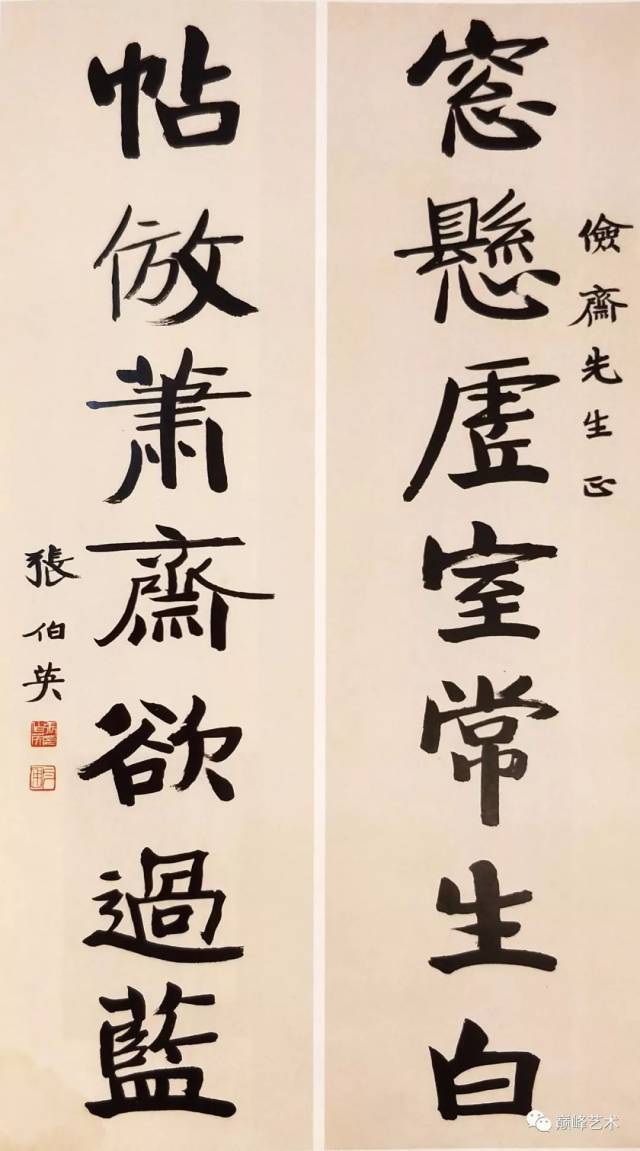 儉齋先生正
窓懸虛室常生白
帖倣蕭齋欲過藍
張伯英
巅峰艺术